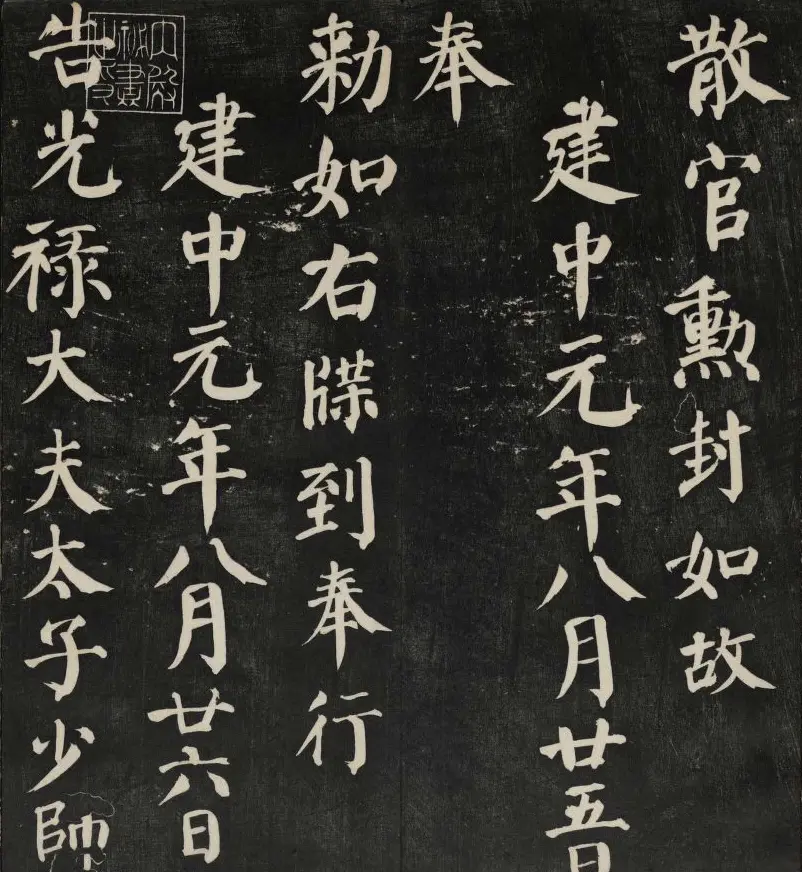 散官勲封如故
建中元年八月廿五日
奉
勑如右牒到奉行
建中元年八月廿六日
告光禄大夫太子少師